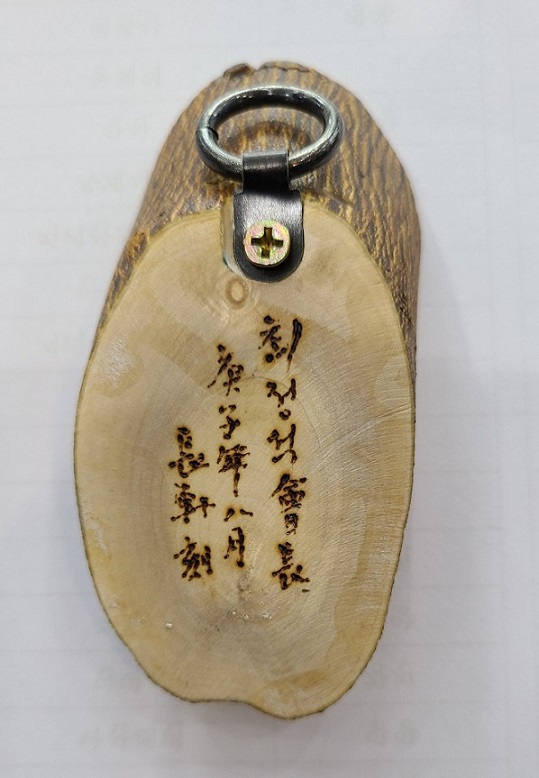 최정석會長
庚子年八月
軒刻